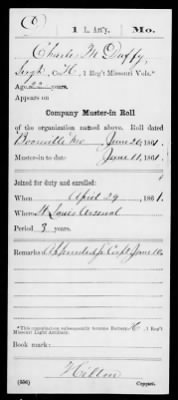 D 1 L. Art'y. Mo.
Charles M Duffy,
Sergt, Co. H, 1 Reg't Missouri Vols.*
Age 22 years.
Appears on
Company Muster-in Roll
of the organization named above. Roll dated
Boonville Mo, June 20, 1861.
Muster-in to date June 11, 1861.
Joined for duty and enrolled:
When April 29, 1861.
Where St Louis Arsenal
Period 3 years.
Remarks Appointed Corpl June 10
*This organization subsequently became Battery H, 1 Reg't
Missouri Light Artillery.
Book mark:
Hilton
(356) Copyist.